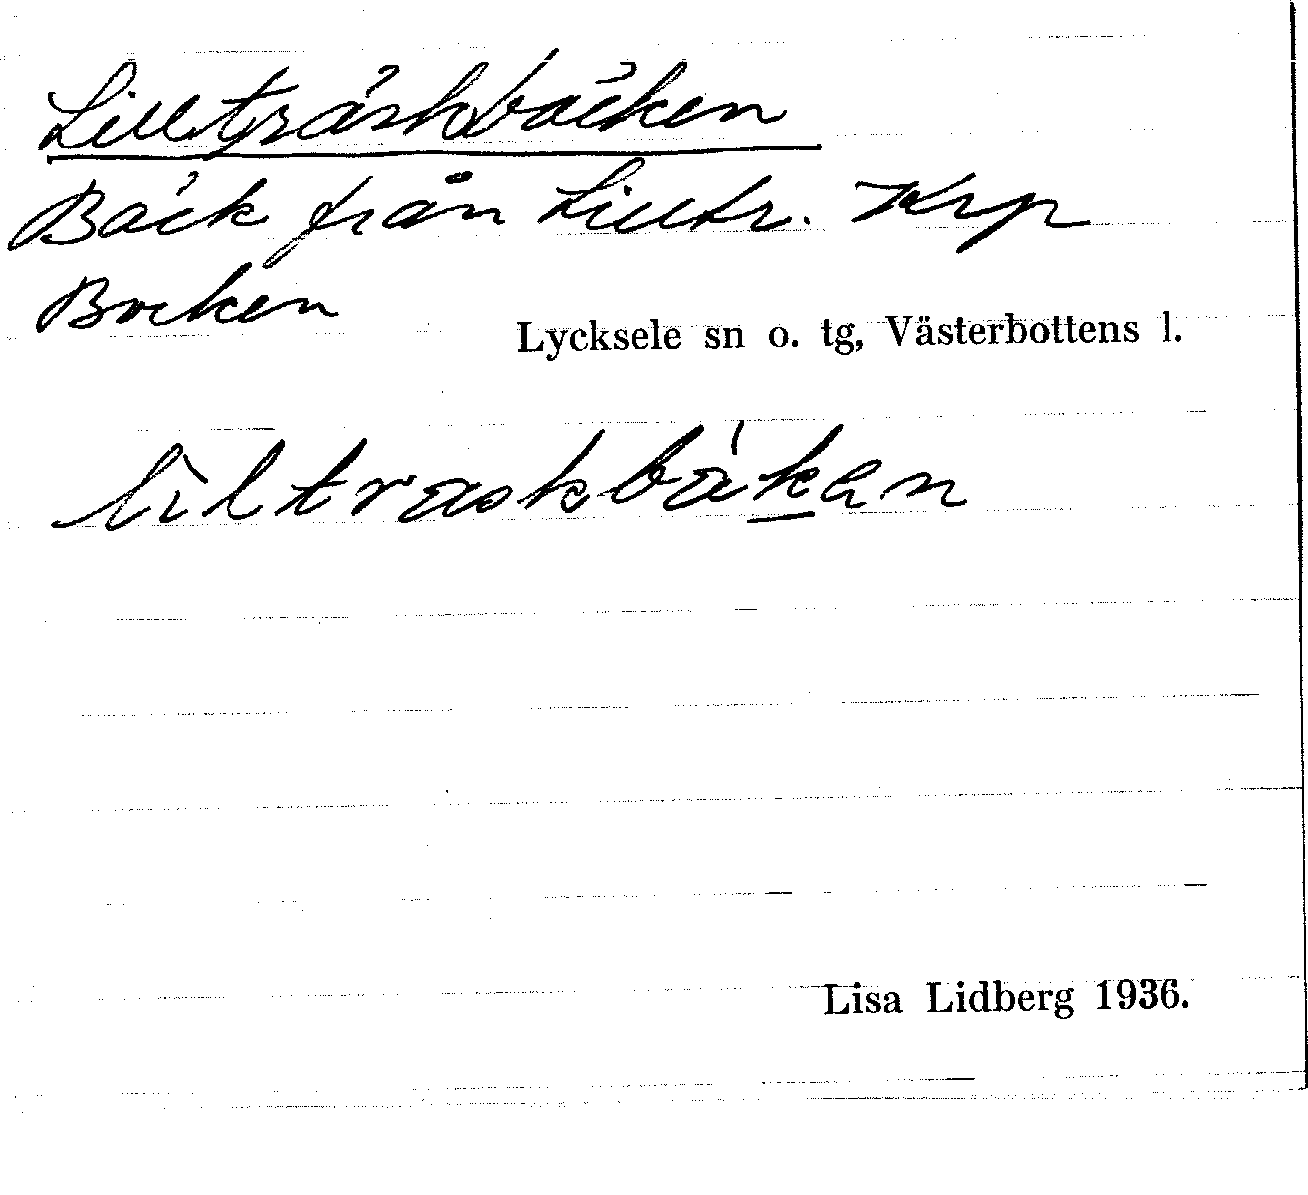 Lillträskbäcken
Bäck från Lilltr. Krp
Bocken
Lycksele sn o. tg, Västerbottens l.
liltraskbäkan
Lisa Lidberg 1936.